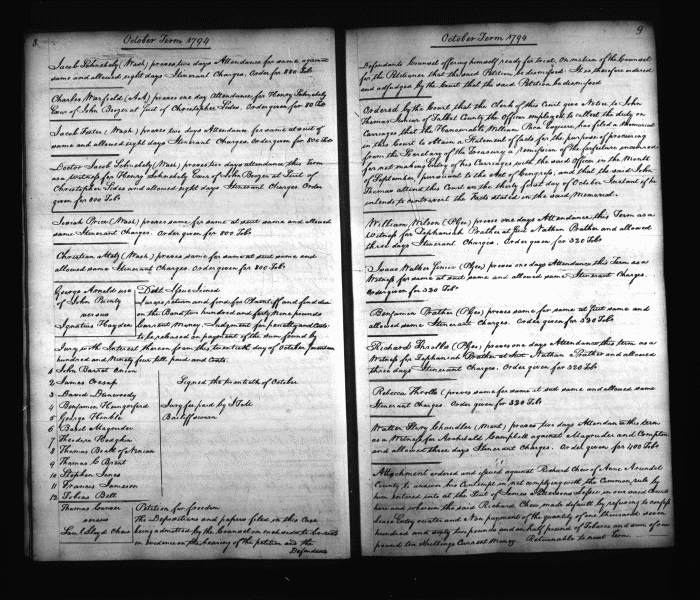 8
October Term 1794
Jacob Schnebely (Wash) proves two days Attendance for same against
same and allowed eight days Itinerant Charges. Order for 800 Tob
Charles Warfield (AA) proves one day Attendance for Henry Schnebely
Exor of John Boyer at Suit of Christopher Sides. Order given for 80 Tob
Jacob (Wash) proves two days Attendance for same at suit of
same and allowed eight days Itinerant Charges. Order given for 800 Tob
Doctor Jacob Schnebely (Wash) proves two days attendance this Term
as a witness for Henry Schnebely Exor of John Boyer at Suit of
Christopher Sides and allowed eight days Itinerant Charges. Order
given for 800 Tob
Josiah Price (Wash) proves same for same at suit same and allowed
same Itinerant Charges. Order given for 800 Tob
Christian (Wash) proves same for same at suit same and
allowed same Itinerant Charges. Order given for 800 Tob
George Arnold use
of John
versus
Ignatius Hayden
Debt Issue Joined
Jurors return and find for Plaintiff and find due
on the Bond two hundred and forty nine pounds
Current Money. Judgment for penalty and Costs
to be released on payment of the sum found by
Jury with Interest thereon from this twentieth day of October Seventeen
hundred and Ninety four till paid and Costs.
1 John Barrat
2 James Cresap
3 David
4 Benjamin Hungerford
5 George
6 Basil Magruder
7 Theodore Hodgkin
8 Thomas Beall of
9 Thomas C Brent
10 Stephen Jones
11 Francis Jameson
12 Tobias Belt
Signed the twentieth of October
Jury fee paid by
Bailiff sworn
Thomas
versus
Saml Lloyd Chew
Petition for freedom
The Depositions and papers filed in this Case
being admitted by the Counsel on each side to be read
in evidence on the hearing of the petition and the
Defendants
9
October Term 1794
Defendants Counsel offering himself ready for trial. On motion of the Counsel
for the Petitioner that the said Petition be dismissed. It is therefore ordered
and adjudged by the Court that the said Petition be dismissed
Ordered by the Court that the Clerk of this Court give Notice to John
Thomas of Talbot County the Officer employed to collect the duty on
Carriages that the Honorable William has filed a Memorial
in this Court to obtain a Statement of facts for the purpose of procuring
from the Secretary of the Treasury a remission of the forfeiture incurred
for not making Entry of his Carriages with the said Officer in the Month
of September, pursuant to the Act of Congress, and that the said John
Thomas attend this Court on the thirty first day of October Instant if he
intends to controvert the Facts stated in the said Memorial.
William Wilson (PGeo) proves one days Attendance this Term as a
Witness for Zephaniah Prather at Suit Nathan Prather and allowed
three days Itinerant Charges. Order given for 320 Tob
Isaac Walker (PGeo) proves one days Attendance this Term as a
Witness for same at suit same and allowed same Itinerant Charges.
Order given for 320 Tob
Benjamin Prather (PGeo) proves same for same at Suit same and
allowed same Itinerant Charges. Order given for 320 Tob
Richard Thralls (PGeo) proves one days Attendance this term as a
Witness for Zephaniah Prather at Suit Nathan Prather and allowed
three days Itinerant Charges. Order given for 320 Tob
Rebecca Thralls (proves same for same at suit same and allowed same
Itinerant Charges. Order given for 320 Tob
Walter Story Chandler (Mont) proves two days Attendance this term
as a Witness for Archibald Campbell against Magruder and Compton
and allowed three days Itinerant Charges. Order given for 400 Tob
Attachment ordered and issued against Richard Chew of Anne Arundel
County to answer his Contempt in not complying with the Common rule by
him entered into at the Suit of James Lessee in our said Court
here and wherein the said Richard Chew made default by refusing to confess
Lease Entry ouster and Non payment of the quantity of one thousand seven
hundred and sixty two pounds and one half pounds of Tobacco and sum of one
pound ten Shillings Current Money. Returnable to next Term